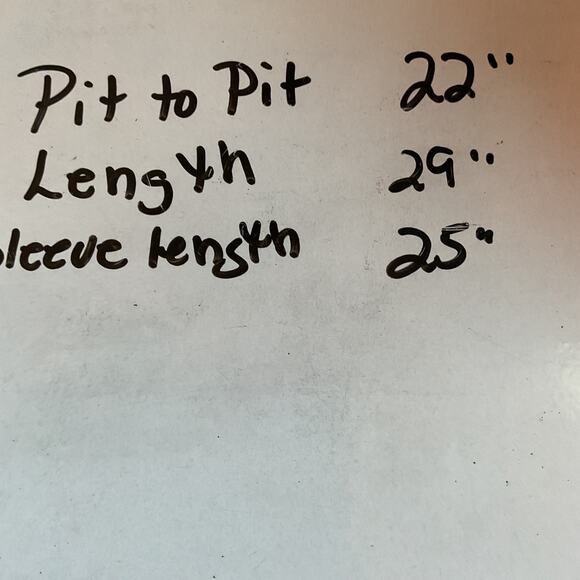 Pit to Pit 22"
Length 29"
sleeve length 25"